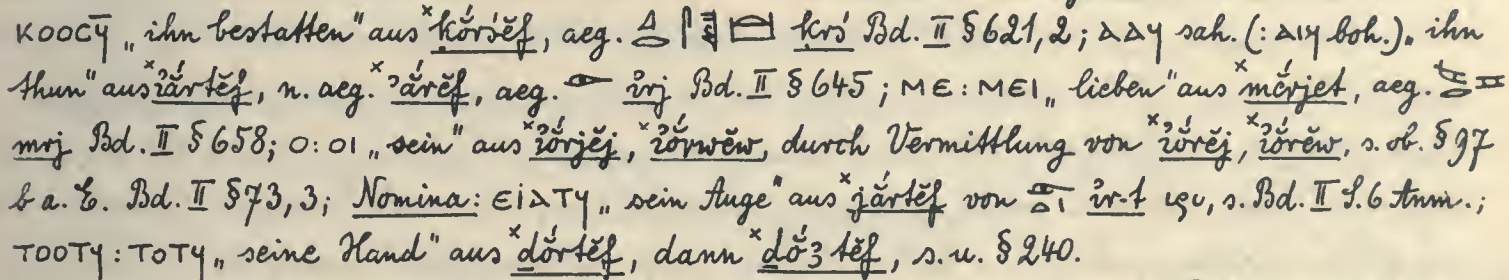 ⲕⲟⲟⲥϥ̄ „ihn bestatten“ aus ˣḳŏ́rśĕf, aeg. 𓈎𓋴𓀾𓊭 ḳrś Bd. II § 621,2; ⲁⲁϥ sah. (: ⲁⲓϥ boh.) „ihn
thun“ aus ˣi҆ắrtĕf, n. aeg. ˣʾắrĕf, aeg. 𓁹 i҆rj Bd. II § 645; ⲙⲉ : ⲙⲉⲓ „lieben“ aus ˣmĕ́rjet, aeg.
mrj Bd. II § 658; ⲟ : ⲟⲓ „sein“ aus ˣi҆ŏ́rjĕj, ˣi҆ŏ́rwĕw, durch Vermittlung von ˣi҆ŏ́rĕj, ˣi҆ŏ́rĕw, s. ob. § 97
b a. E. Bd. II § 73,3; Nomina: ⲉⲓⲁⲧϥ „sein Auge“ aus ˣjắrtĕf von 𓁹𓏏𓏤 i҆r-t ιρι, s. Bd. II S. 6 Anm.;
ⲧⲟⲟⲧϥ : ⲧⲟⲧϥ „seine Hand“ aus ˣḏŏ́rtĕf, dann ˣḏŏ́ꜣtĕf, s. u. § 240.